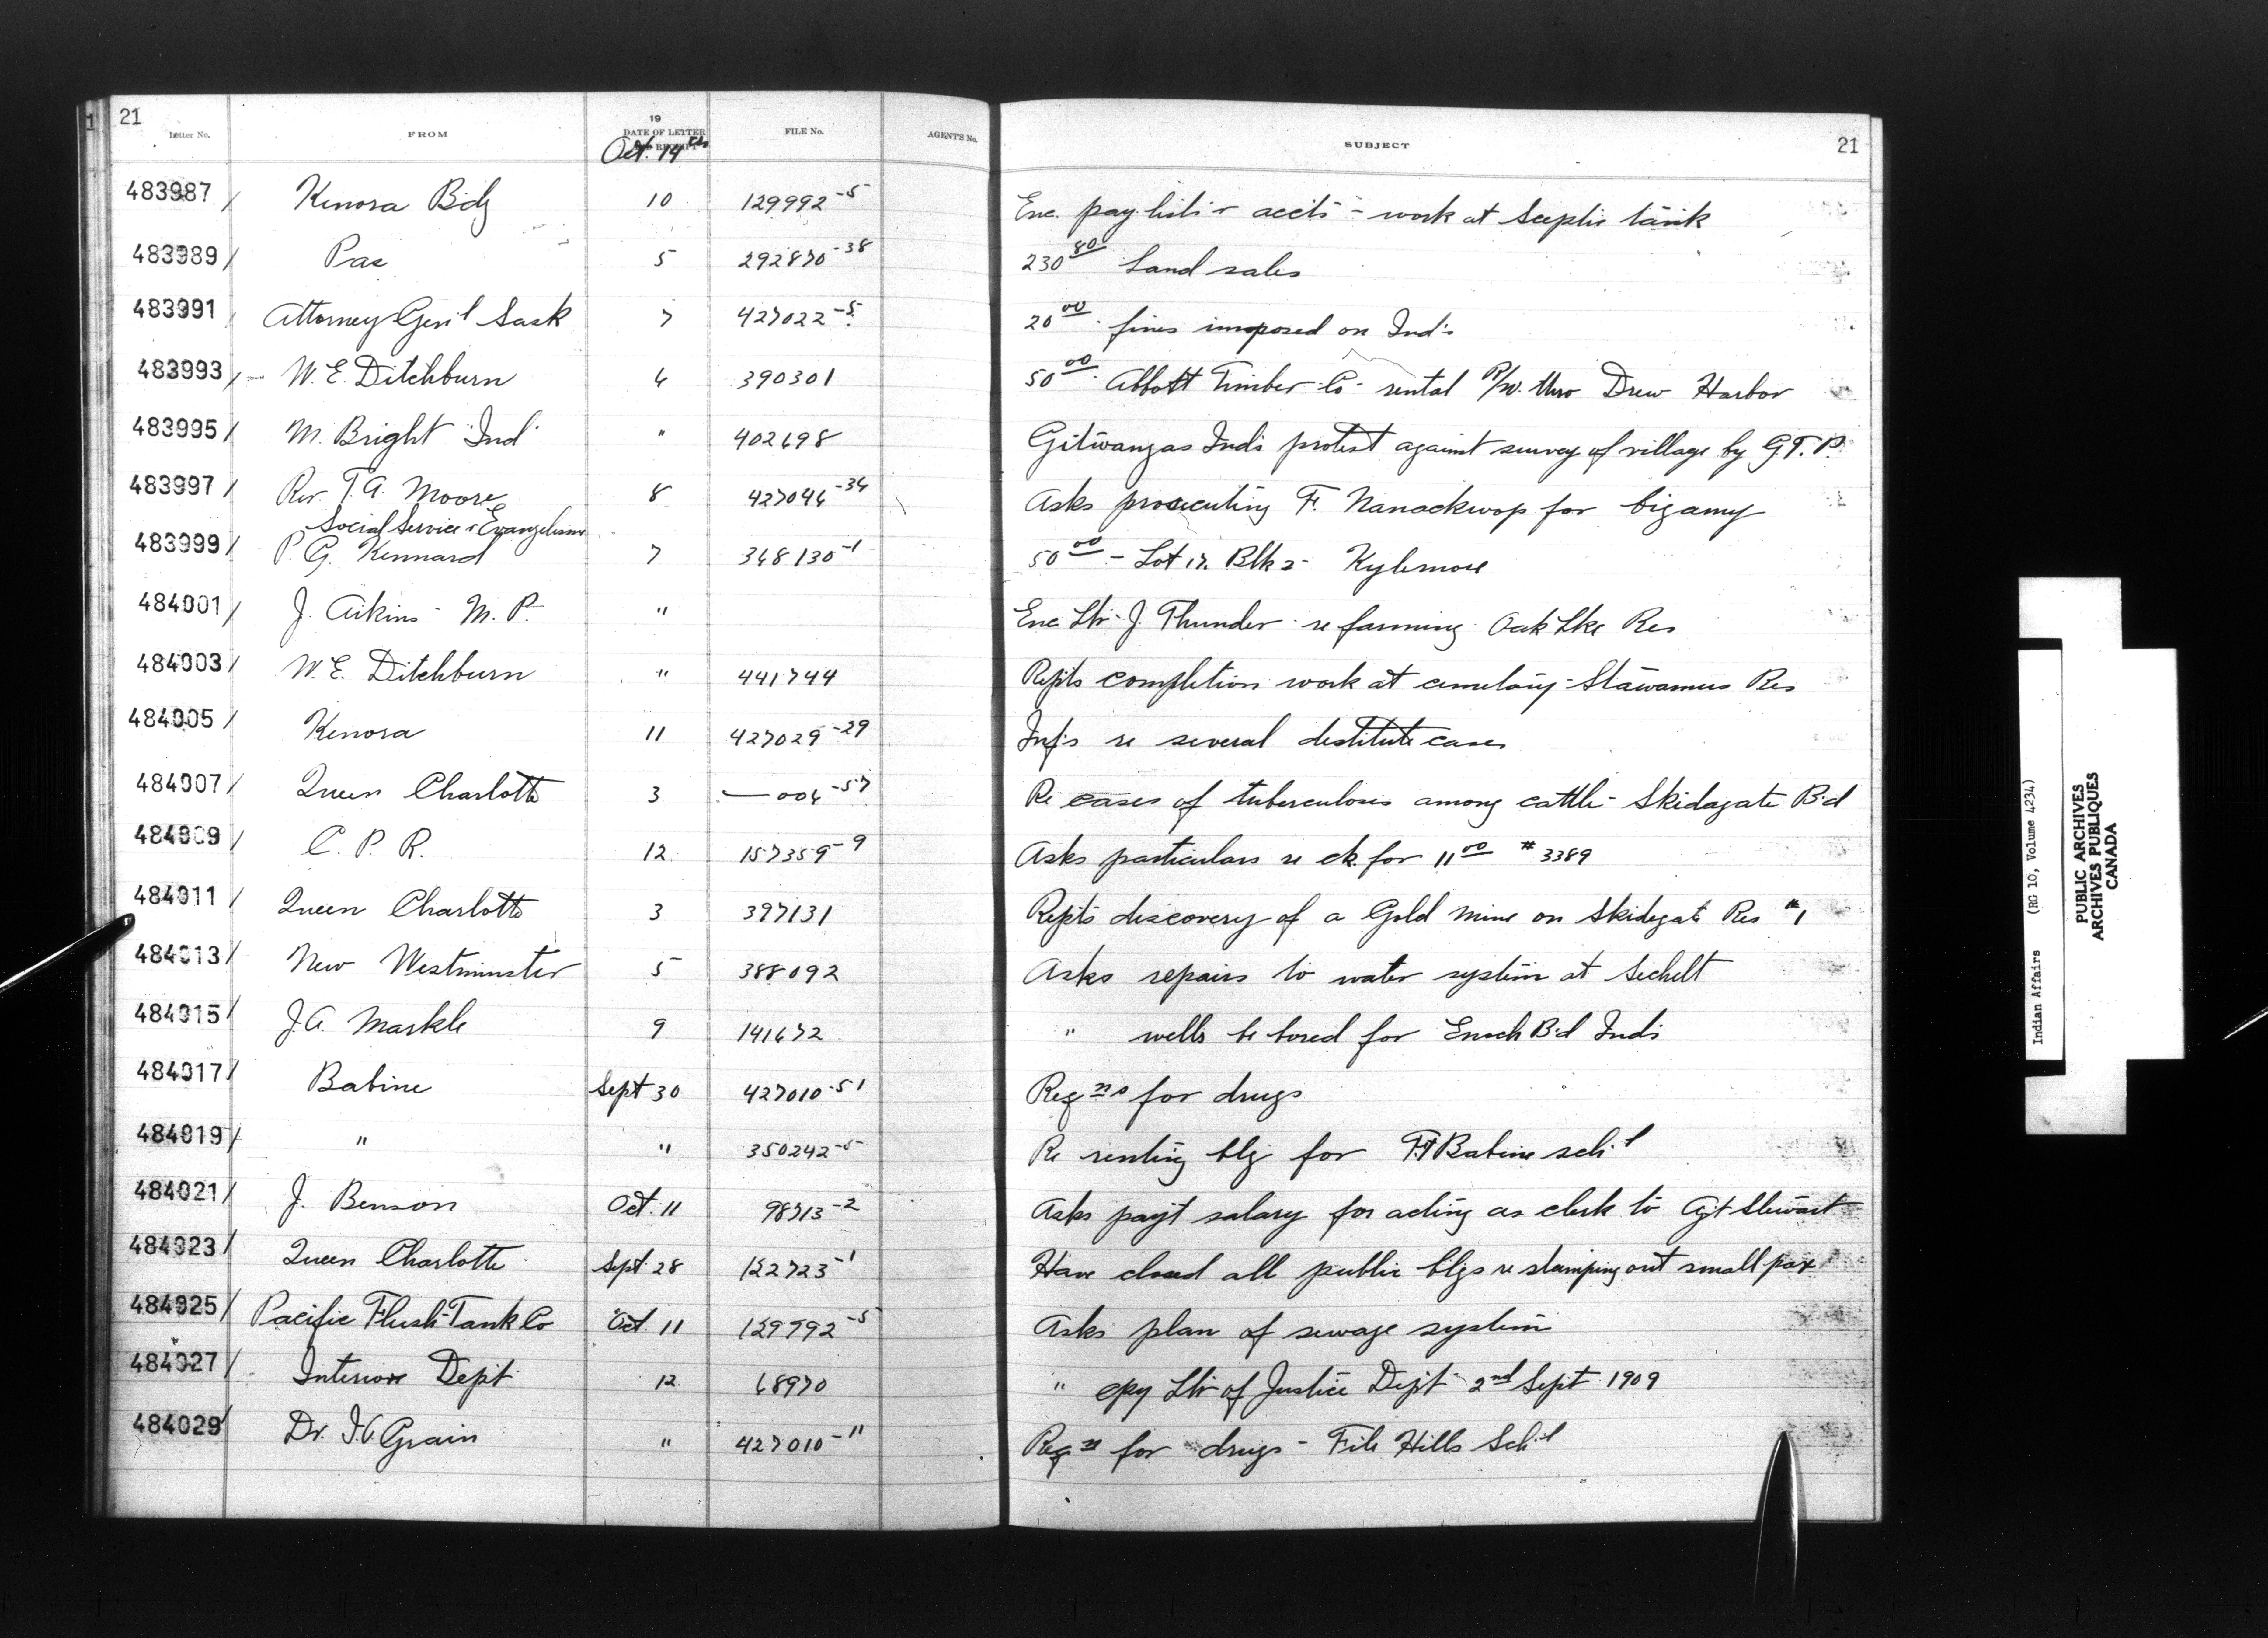 21
Letter No. FROM 19 DATE OF LETTER AND RECEIPT FILE No. AGENT'S No. SUBJECT 21
Oct. 14th
483987 / Kenora Bdg 10 129992-5 Enc. pay lists & accts - work at Sceptic tank
483989 / Pas 5 292870-38 230 80 Land sales
483991 Attorney Gen'l Sask 7 427022-5 20 00 fines imposed on Ind's
483993 / - W. E. Ditchburn 6 390301 50 00 Abbott Timber Co - rental R/W. thro Drew Harbor
483995 / M. Bright Ind " 402698 Gitwangas Inds protest against survey of village by G.T.P.
483997 / Rev. T. A. Moore 8 427046-34 Asks prosecuting F. Nanackwop for bigamy
Social Service & Evangelism
483999 / P. G. Kennard 7 348130-1 50 00 - Lot 17. Blk 2 - Kylemore
484001 / J. Aikins - M. P. " Enc. Ltr - J. Thunder - re farming Oak Lke Res
484003 / W. E. Ditchburn " 441744 Repts completion work at cemetary - Stawamus Res
484005 / Kenora 11 427029-29 Inf's re several destitute cases
484007 / Queen Charlotte 3 — 006-57 Re cases of tuberculosis among cattle - Skidagate B'd
484009 / C. P. R. 12 157359-9 Asks particulars re ck. for 11 00 # 3389
484011 / Queen Charlotte 3 397131 Repts discovery of a Gold mine on Skidegate Res #1
484013 / New Westminster 5 388092 Asks repairs to water system at Sechelt
484015 / J. A. Markle 9 141672 " wells be bored for Enoch B'd Inds
484017 / Babine Sept 30 427010-51 Reqns for drugs
484019 / " " 350242-5 Re renting blg for Ft Babine sch'l
484021 / J. Benson Oct. 11 98713-2 Asks pay't salary for acting as clerk to Agt Stewart
484023 / Queen Charlotte Sept. 28 122723-1 Have closed all public blgs re stamping out small pox
484025 / Pacific Flush-Tank Co Oct. 11 129992-5 Asks plan of sewage system
484027 / - Interior Dept 12 68970 " cpy Ltr of Justice Dept 2nd Sept 1909
484029 / Dr. Grain " 427010-11 Reqn for drugs - File Hills Sch'l
Indian Affairs (RG 10, Volume 4234)
PUBLIC ARCHIVES
ARCHIVES PUBLIQUES
CANADA